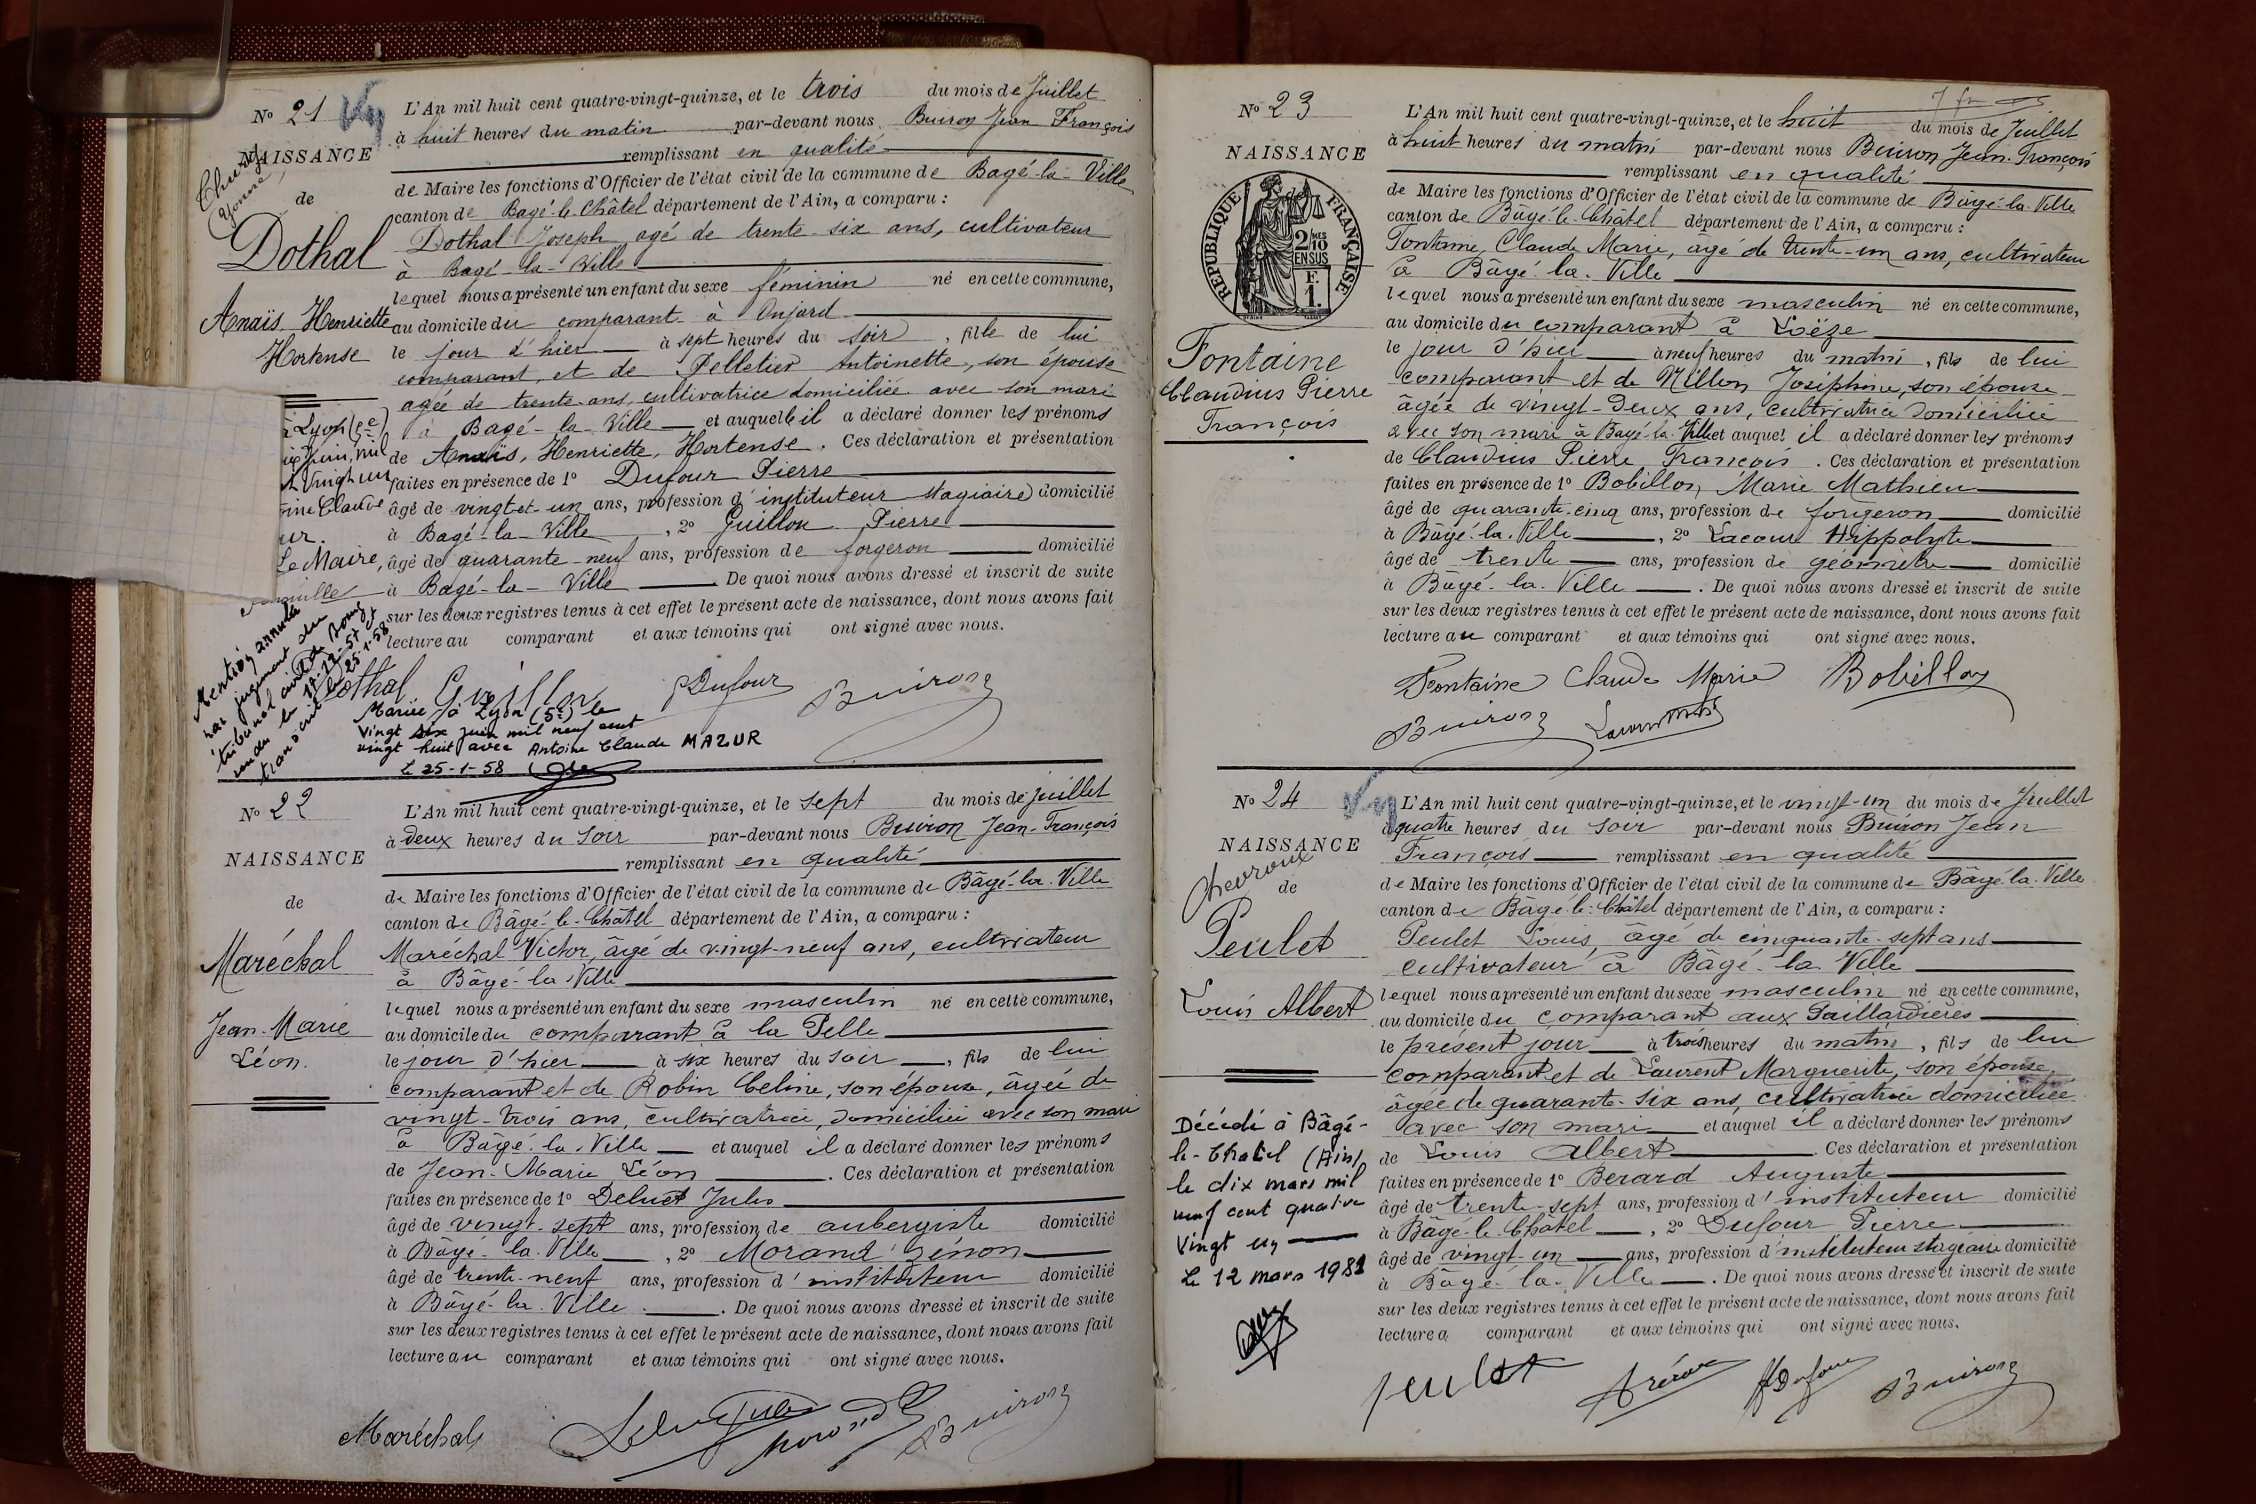 N° 21
NAISSANCE
de
Dothal
Anaïs Henriette
Hortense
à Lyon (5e)
juin, mil
Vingt un
Claude
Le Maire,
Mention annulée
par jugement du
tribunal civil de Bourg
rendu le 17-12-57 et
transcrit le 25-1-58
L'An mil huit cent quatre-vingt-quinze, et le trois du mois de Juillet
à huit heures du matin par-devant nous Buiron Jean François
remplissant en qualité
de Maire les fonctions d'Officier de l'état civil de la commune de Bagé-la-Ville
canton de Bagé-le-Châtel département de l'Ain, a comparu :
Dothal Joseph agé de trente-six ans, cultivateur
à Bagé-la-Ville
lequel nous a présenté un enfant du sexe féminin né en cette commune,
au domicile du comparant à Onjard
le jour d'hier à sept heures du soir, fille de lui
comparant, et de Pelletier Antoinette, son épouse
agée de trente ans, cultivatrice domiciliée avec son mari
à Bagé-la-Ville et auquelle il a déclaré donner les prénoms
de Anaïs, Henriette, Hortense. Ces déclaration et présentation
faites en présence de 1° Dufour Pierre
âgé de vingt-et-un ans, profession d'instituteur stagiaire domicilié
à Bagé-la-Ville, 2° Guillon Pierre
âgé de quarante-neuf ans, profession de forgeron domicilié
à Bagé-la-Ville. De quoi nous avons dressé et inscrit de suite
sur les deux registres tenus à cet effet le présent acte de naissance, dont nous avons fait
lecture au comparant et aux témoins qui ont signé avec nous.
Dothal Guillon PDufour Buiron
Mariée à Lyon (5e) le
vingt six juin mil neuf cent
vingt huit avec Antoine Claude MAZUR
Le 25-1-58
N° 22
NAISSANCE
de
Maréchal
Jean-Marie
Léon.
L'An mil huit cent quatre-vingt-quinze, et le sept du mois de Juillet
à deux heures du soir par-devant nous Buiron Jean-François
remplissant en qualité
de Maire les fonctions d'Officier de l'état civil de la commune de Bâgé-la-Ville
canton de Bâgé-le-Châtel département de l'Ain, a comparu :
Maréchal Victor, âgé de vingt-neuf ans, cultivateur
à Bâgé-la-Ville
lequel nous a présenté un enfant du sexe masculin né en cette commune,
au domicile du comparant à la Pelle
le jour d'hier à six heures du soir, fils de lui
comparant et de Robin Celine, son épouse, âgée de
vingt-trois ans, cultivatrice, domiciliée avec son mari
à Bâgé-la-Ville et auquel il a déclaré donner les prénoms
de Jean-Marie Léon. Ces déclaration et présentation
faites en présence de 1° Deluet Jules
âgé de vingt-sept ans, profession de aubergiste domicilié
à Bâgé-la-Ville, 2° Morand Zénon
âgé de trente-neuf ans, profession d'instituteur domicilié
à Bâgé-la-Ville. De quoi nous avons dressé et inscrit de suite
sur les deux registres tenus à cet effet le présent acte de naissance, dont nous avons fait
lecture au comparant et aux témoins qui ont signé avec nous.
Maréchal Morand Buiron
N° 23
NAISSANCE
RÉPUBLIQUE FRANÇAISE
2/10 MES
EN SUS
F.
1.
Fontaine
Claudius Pierre
François
L'An mil huit cent quatre-vingt-quinze, et le huit du mois de Juillet
à huit heures du matin par-devant nous Buiron Jean-François
remplissant en qualité
de Maire les fonctions d'Officier de l'état civil de la commune de Bâgé-la-Ville
canton de Bâgé-le-Châtel département de l'Ain, a comparu :
Fontaine, Claude Marie, âgé de trente-un ans, cultivateur
à Bâgé-la-Ville
lequel nous a présenté un enfant du sexe masculin né en cette commune,
au domicile du comparant à Loëze
le jour d'hier à neuf heures du matin, fils de lui
comparant et de Millon Joséphine, son épouse
âgée de vingt-deux ans, cultivatrice domiciliée
avec son mari à Bagé-la-Ville et auquel il a déclaré donner les prénoms
de Claudius Pierre François. Ces déclaration et présentation
faites en présence de 1° Bobillon, Marie Mathieu
âgé de quarante-cinq ans, profession de forgeron domicilié
à Bâgé-la-Ville, 2° Lacour Hippolyte
âgé de trente ans, profession de géomètre domicilié
à Bâgé-la-Ville. De quoi nous avons dressé et inscrit de suite
sur les deux registres tenus à cet effet le présent acte de naissance, dont nous avons fait
lecture au comparant et aux témoins qui ont signé avec nous.
Fontaine Claude Marie Bobillon
Buiron
N° 24
NAISSANCE
Chevroux
de
Peulet
Louis Albert
Décédé à Bâgé-
le-Chatel (Ain)
le dix mars mil
neuf cent quatre
vingt un
Le 12 mars 1981
L'An mil huit cent quatre-vingt-quinze, et le vingt-un du mois de Juillet
à quatre heures du soir par-devant nous Buiron Jean
François remplissant en qualité
de Maire les fonctions d'Officier de l'état civil de la commune de Bâgé-la-Ville
canton de Bâgé-le-Châtel département de l'Ain, a comparu :
Peulet Louis, âgé de cinquante-sept ans
cultivateur à Bâgé-la-Ville
lequel nous a présenté un enfant du sexe masculin né en cette commune,
au domicile du comparant aux Gaillardières
le présent jour à trois heures du matin, fils de lui
comparant et de Laurent Marguerite, son épouse,
âgée de quarante-six ans, cultivatrice domiciliée
avec son mari et auquel il a déclaré donner les prénoms
de Louis Albert. Ces déclaration et présentation
faites en présence de 1° Berard Auguste
âgé de trente-sept ans, profession d'instituteur domicilié
à Bâgé-le-Châtel, 2° Dufour Pierre
âgé de vingt-un ans, profession d'instituteur stagiaire domicilié
à Bâgé-la-Ville. De quoi nous avons dressé et inscrit de suite
sur les deux registres tenus à cet effet le présent acte de naissance, dont nous avons fait
lecture a comparant et aux témoins qui ont signé avec nous.
Peulet PDufour Buiron